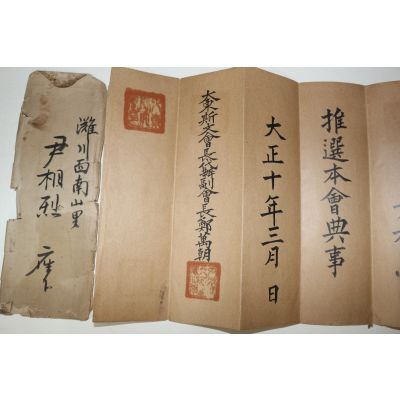 推選本會典事
大正十年三月 日
大東斯文會長代辦副會長鄭萬朝
濰川西南山里
尹相烈 座下